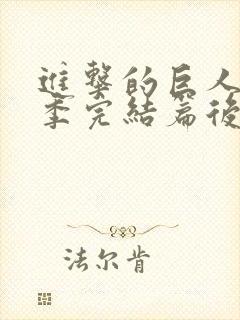 進擊的巨人
季完結篇後
法尔肯